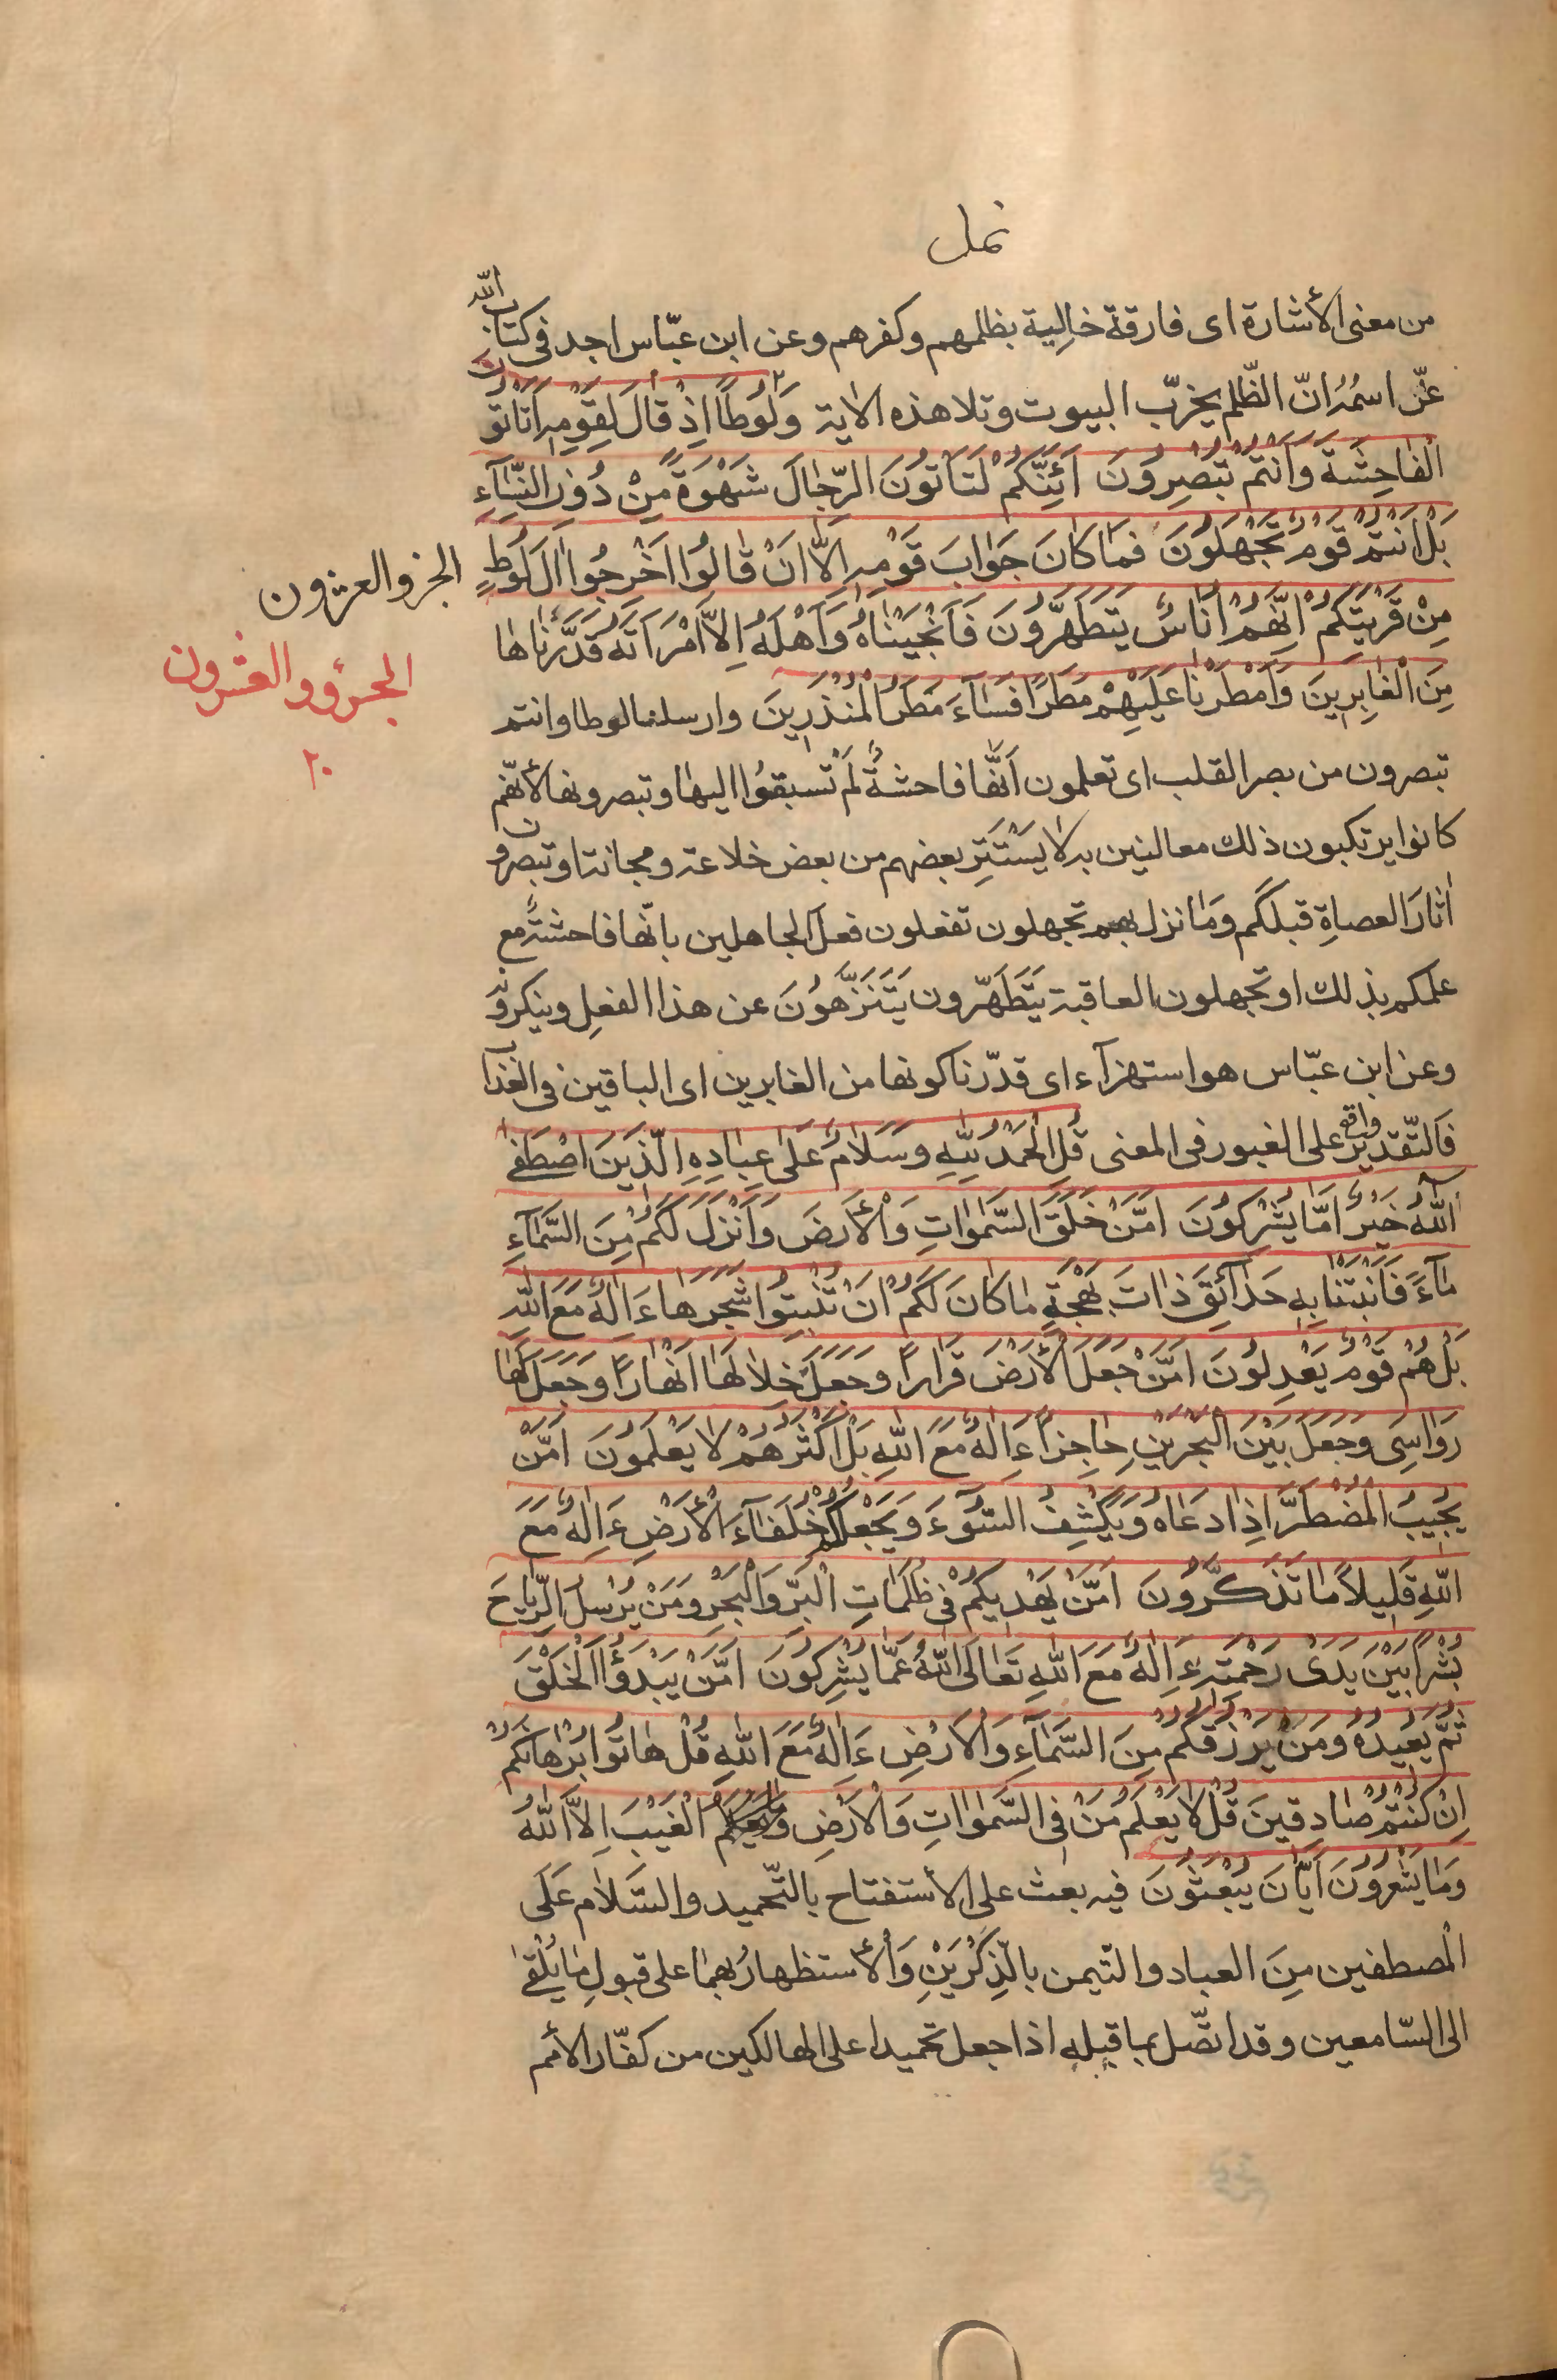 نمل
من معنى الأشارة اى فارقة خالِية بظلمهم وكفرهم وعن ابن عبّاس اجد فى كتاب الله
عزّ اسمُهُ انّ الظّلم يخرّب البيوت وتلا هذه الاية وَلُوطًا اِذْ قالَ لِقَوْمِهِ اَتَأتُونَ
الْفاحِشَةَ وَاَنْتُمْ تُبْصِرُونَ اَئِنَّكُمْ لَتَأتُونَ الرِّجالَ شَهْوَةً مِنْ دُونِ النِّسٰاءِ
بَلْ اَنْتُمْ قَوْمٌ تَجْهَلُونَ فَمٰا كانَ جَوابَ قَوْمِهِ اِلاّٰ اَنْ قٰالُوا اَخْرِجُوا اٰلَ لُوطٍ
الجزو العشرون
مِنْ قَرْيَتِكُمْ اِنَّهُمْ اُناسٌ يَتَطَهَّرُونَ فَاَنْجَيْنٰاهُ وَاَهْلَهُ اِلاَّ امْرَاَتَهُ قَدَّرْناهٰا
الجزؤ والعشرون
٢٠
مِنَ الْغابِرِينَ وَاَمْطَرْنٰا عَلَيْهِمْ مَطَرًا فَسٰاءَ مَطَرُ الْمُنْذَرِينَ وارسلنا لوطا وانتم
تبصرون من بصر القلب اى تعلمون اَنَّها فاحشةٌ لَمْ تُسبَقُوا اليها وتبصرونها لأنّهم
كانوا يرتكبون ذلك معالنين به لا يَسْتَتِر بعضهم من بعض خلاعة ومجانة او تبصرون
اٰثارَ العصاةِ قبلَكُم وَمٰا نزل بهم تجهلون تفعلون فعلَ الجاهلين بانّها فاحشةٌ مع
علمكم بذلك او تجهلون العاقبة يَتَطَهّرون يَتَنَزَّهُونَ عن هذا الفعل وينكرونه
وعن ابن عبّاس هو استهزآء اى قدّرنا كونها من الغابرين اى الباقين فى العذاب
فَالتّقدير واقع على الغبور فى المعنى قُلِ الْحَمْدُ لِلّٰهِ وَسَلامٌ عَلىٰ عِبٰادِهِ الَّذِينَ اصْطَفىٰ
اٰللّٰهُ خَيْرٌ اَمّٰا يُشْرِكُونَ اَمَّنْ خَلَقَ السَّمٰوٰاتِ وَالْأَرْضَ وَاَنْزَلَ لَكُمْ مِنَ السَّمٰآءِ
مٰآءً فَاَنْبَتْنٰا بِهِ حَدٰآئِقَ ذٰاتَ بَهْجَةٍ مٰا كٰانَ لَكُمْ اَنْ تُنْبِتُوا شَجَرَهٰا ءَاِلٰهٌ مَعَ اللّٰهِ
بَلْ هُمْ قَوْمٌ يَعْدِلُونَ اَمَّنْ جَعَلَ الْأَرْضَ قَرٰارًا وَجَعَلَ خِلاٰلَهٰا اَنْهٰارًا وَجَعَلَ لَهٰا
رَوٰاسِىَ وَجَعَلَ بَيْنَ الْبَحْرَيْنِ حٰاجِزًا ءَاِلٰهٌ مَعَ اللّٰهِ بَلْ اَكْثَرُهُمْ لاٰ يَعْلَمُونَ اَمَّنْ
يُجِيبُ الْمُضْطَرَّ اِذٰا دَعٰاهُ وَيَكْشِفُ السُّوٓءَ وَيَجْعَلُكُمْ خُلَفٰآءَ الْأَرْضِ ءَاِلٰهٌ مَعَ
اللّٰهِ قَلِيلاً مٰا تَذَكَّرُونَ اَمَّنْ يَهْدِيكُمْ فِى ظُلُمٰاتِ الْبَرِّ وَالْبَحْرِ وَمَنْ يُرْسِلُ الرِّيٰاحَ
بُشْرًا بَيْنَ يَدَىْ رَحْمَتِهِ ءَاِلٰهٌ مَعَ اللّٰهِ تَعٰالَى اللّٰهُ عَمّٰا يُشْرِكُونَ اَمَّنْ يَبْدَؤُا الْخَلْقَ
ثُمَّ يُعِيدُهُ وَمَنْ يَرْزُقُكُمْ مِنَ السَّمٰآءِ وَالْأَرْضِ ءَاِلٰهٌ مَعَ اللّٰهِ قُلْ هٰاتُوا بُرْهٰانَكُمْ
اِنْ كُنْتُمْ صٰادِقِينَ قُلْ لاٰ يَعْلَمُ مَنْ فِى السَّمٰوٰاتِ وَالْأَرْضِ الْغَيْبَ اِلاَّ اللّٰهُ
وَمٰا يَشْعُرُونَ اَيّٰانَ يُبْعَثُونَ فيه بعث على الأستفتاح بالتّحميد والسّلام عَلَى
الْمصطفين مِنَ العباد والتّيمن بالذِّكْرَيْنِ وَالأستظهارُ بهما على قبولِ مٰا يُلْقىٰ
الى السّامعين وقد اتّصل بما قبله اذا جعل تحميدا على الهالكين من كفّار الأمم